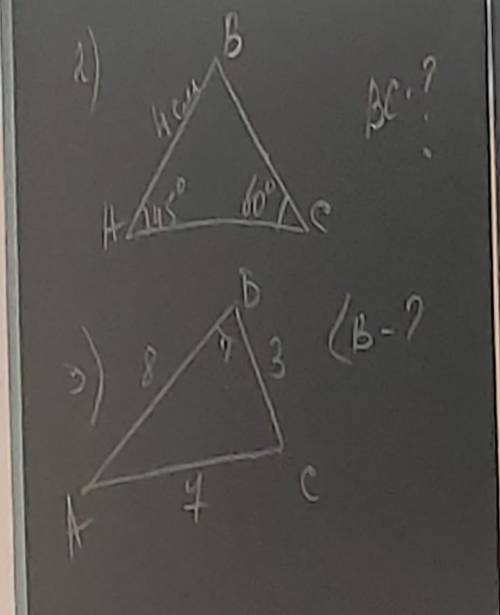 2)
B
4 см
BC-?
A 45° 60° C
3)
B
8 ? 3
(B-?
A 7 C